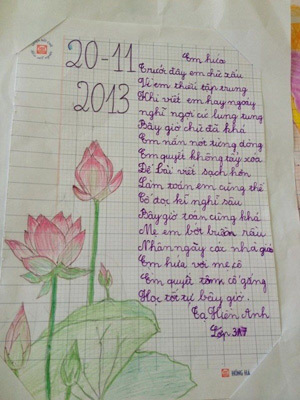 20-11
2013
Em hứa
Trước đây em chữ xấu
Vì em thiếu tập trung
Khi viết em hay ngoáy
nghĩ ngợi cứ lung tung
Bây giờ chữ đã khá
Em nắn nót từng dòng
Em quyết không tẩy xóa
Để bài viết sạch hơn
Làm toán em cũng thế
Cố đọc kĩ nghĩ sâu
Bây giờ toán cũng khá
Mẹ em bớt buồn rầu
Nhân ngày các nhà giáo
Em hứa với mẹ cô
Em quyết tâm cố gắng
Học tốt từ bây giờ.
Tạ Hiền Anh
Lớp 3A7
HỒNG HÀ